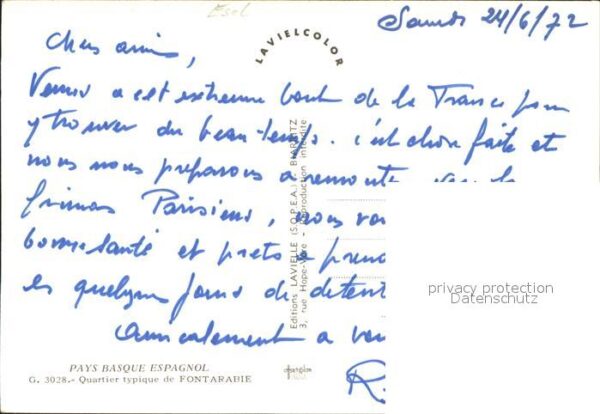 Esel
Samedi 24/6/72
LAVIELCOLOR
Chers amis,
Venus a cet extreme bout de la France pour
y trouver du beau temps. c'est chose faite et
nous nous preparons a remonter vers les
frimas Parisiens, nous
bonne santé et prets a
quelques jours de
Amicalement a
R.
Editions LAVIELLE (S.O.P.E.A.) - BIARRITZ
3, rue Hope-Vere - Reproduction interdite
privacy protection
Datenschutz
PAYS BASQUE ESPAGNOL
G. 3028.- Quartier typique de FONTARABIE